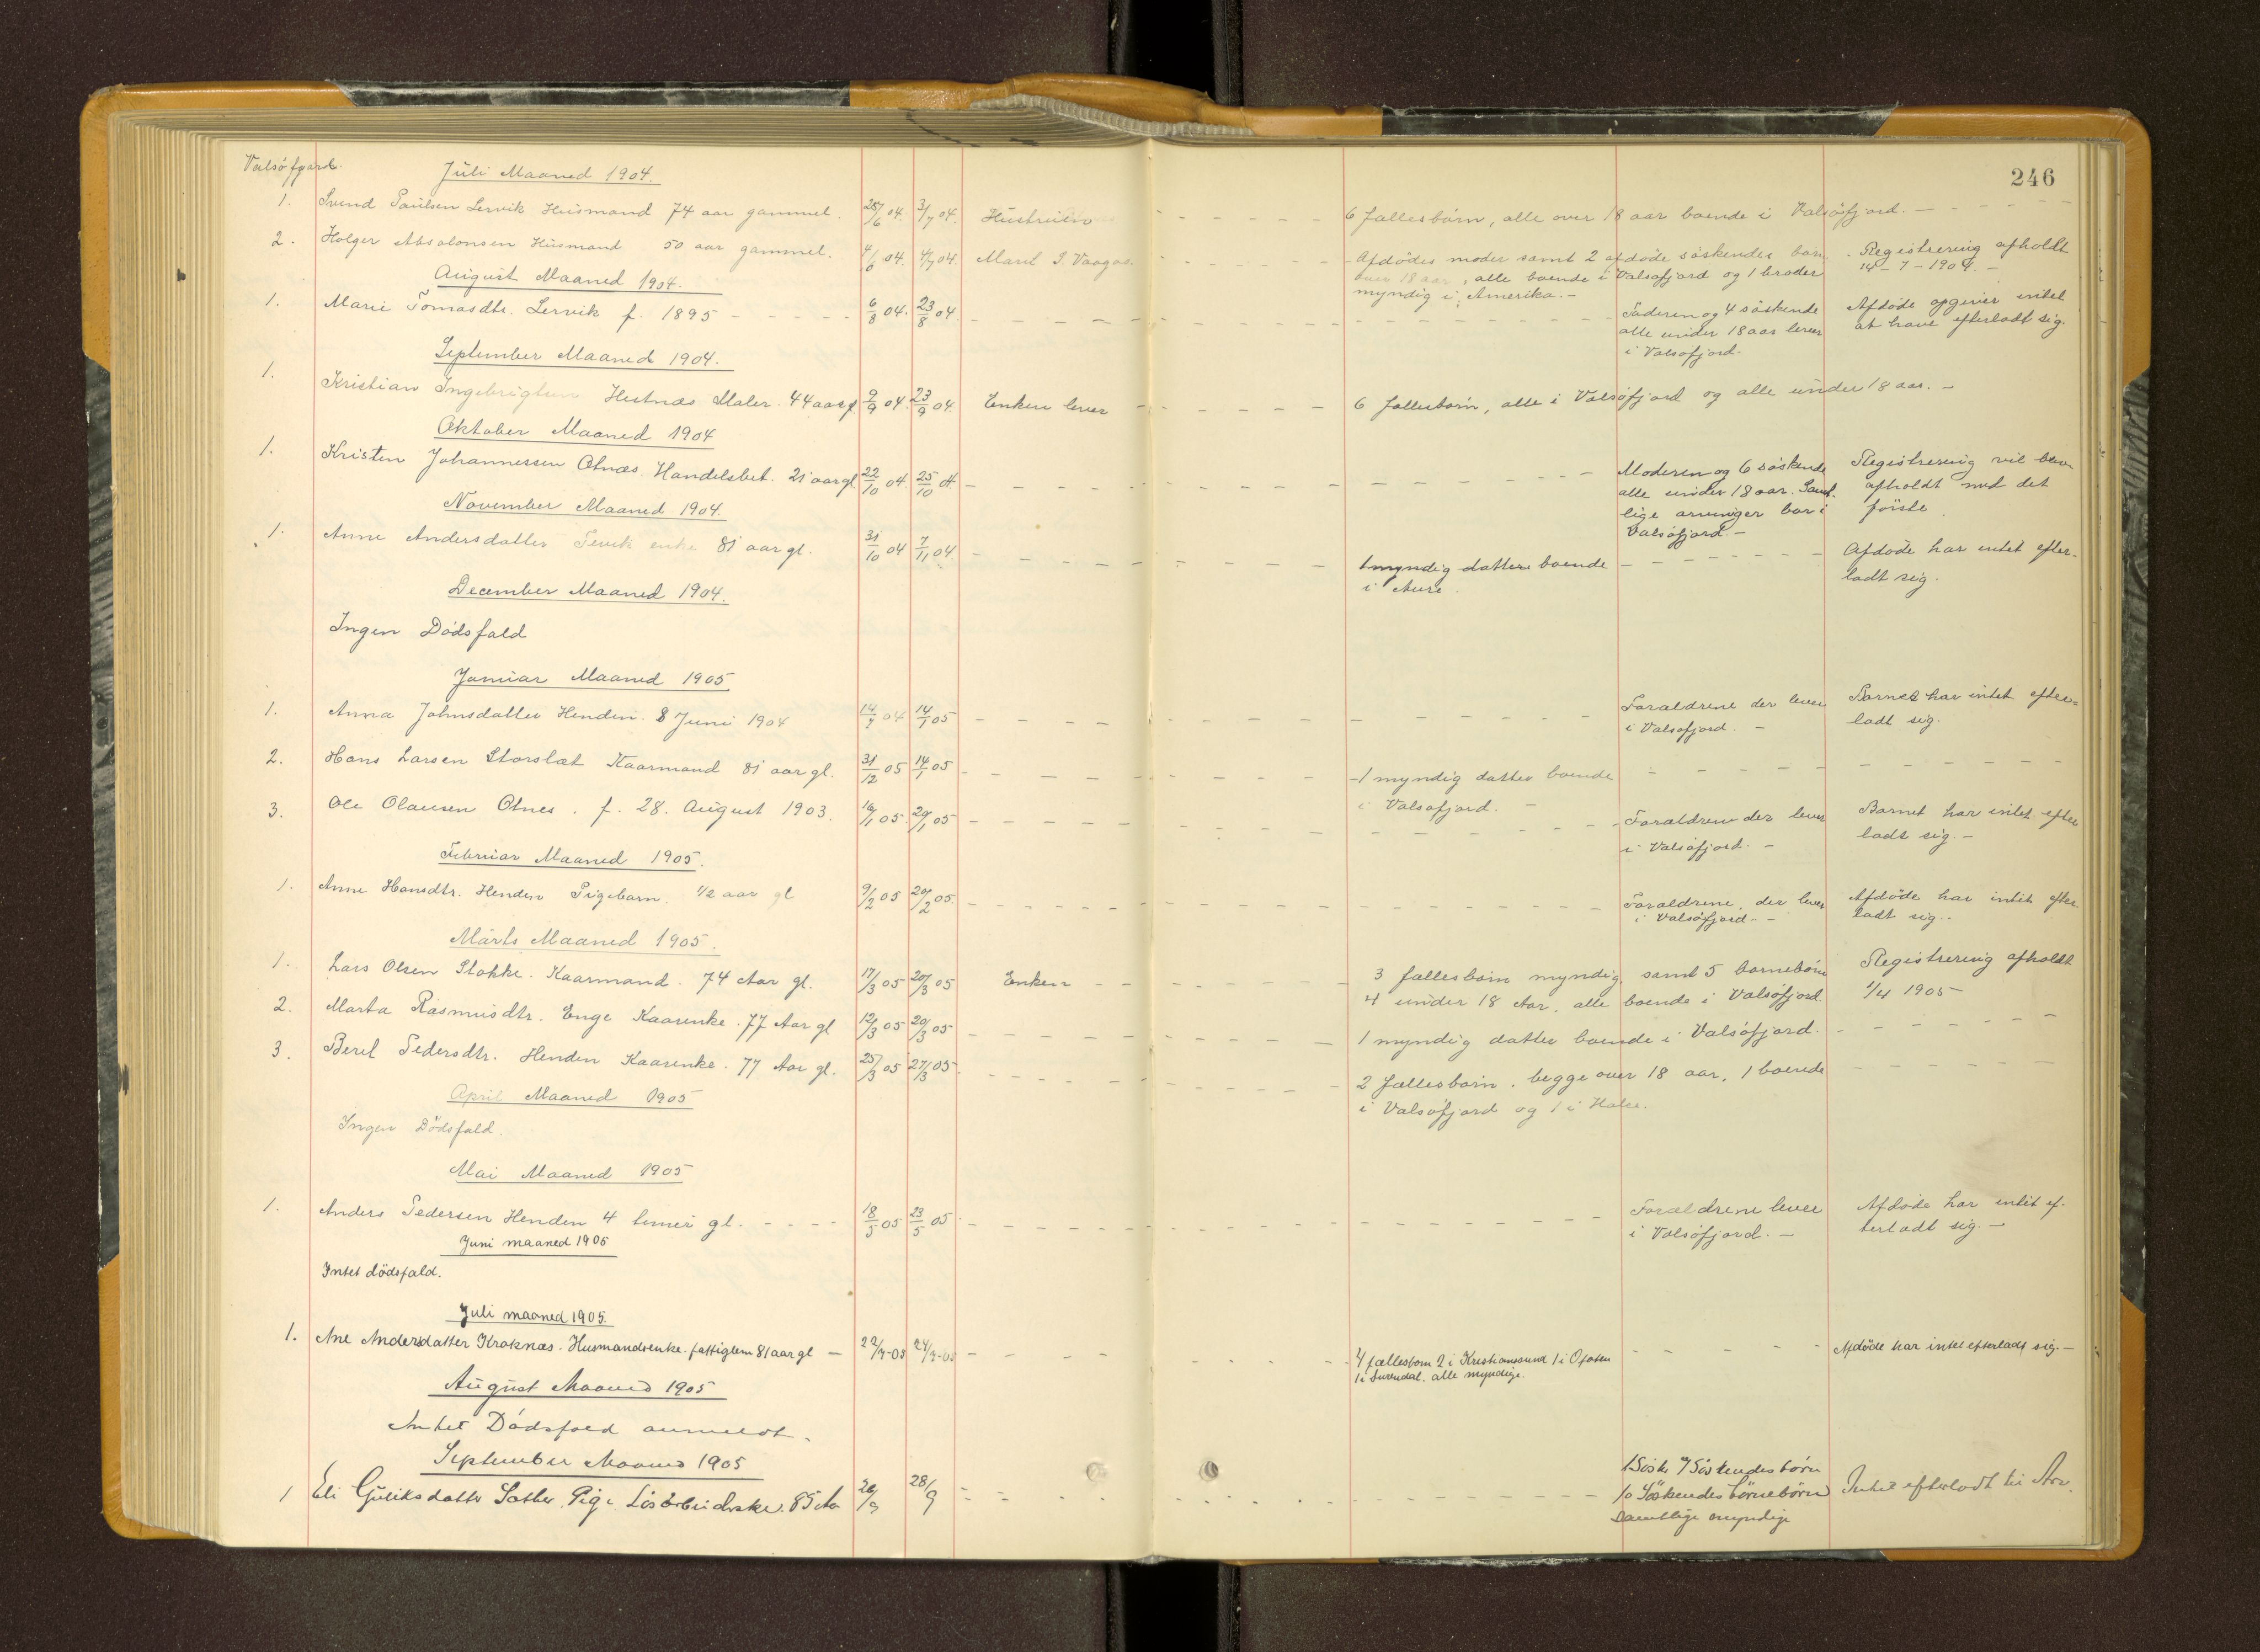 246
Valsöfjord.
Juli Maaned 1904.
1. Svend Paulsen Lervik Husmand 74 aar gammel. 28/6 04. 3/7 04. Hustruen - - - 6 fællesbörn, alle over 18 aar boende i Valsöfjord. -
2. Holger Absalonsen Husmand 50 aar gammel. 04. 4/7 04. Marit - - - Afdödes moder samt 2 afdöde söskendes börn - Registrering afholdt
over 18 aar, alle boende i Valsöfjord og 1 broder 14-7-1904. -
myndig i Amerika. -
August Maaned 1904.
1. Marie Tomasdtr. Lervik f. 1895 - - - 6/8 04. 23/8 04. - - - Faderen og 4 söskende Afdöde opgives intet
alle under 18 aar lever at have efterladt sig.
i Valsöfjord.
September Maaned 1904.
1. Kristian Ingebrigtsen Hestnæs Maler. 44 aar g. 9/9 04. 23/9 04. Enken lever - - - 6 fællesbörn, alle i Valsöfjord og alle under 18 aar. -
Oktober Maaned 1904
1. Kristen Johannessen Otnæs. Handelsbet. 21 aar gl 22/10 04. 25/10 04 - - - Moderen og 6 söskende Registrering vil blive
alle under 18 aar. Samt- afholdt med det
lige arvinger bor i förste.
Valsöfjord. -
November Maaned 1904.
1. Anne Andersdatter enke 81 aar gl. 31/10 04 7/11 04 - - - 1 myndig datter boende - - - Afdöde har intet efter-
i Aure. ladt sig.
December Maaned 1904.
Ingen Dödsfald
Januar Maaned 1905
1. Anna Johnsdatter Henden. 8 Juni 1904 04 14/1 05 - - - Forældrene der lever Barnet har intet efter-
i Valsöfjord. - ladt sig.
2. Hans Larsen Storslæt Kaarmand 81 aar gl. 31/12 05 14/1 05 - - - 1 myndig datter boende - - -
i Valsöfjord. -
3. Ole Olausen Otnes. f. 28. August 1903. 16/1 05. 20/1 05 - - - Forældrene der lever Barnet har intet efter
i Valsöfjord. - ladt sig. -
Februar Maaned 1905.
1. Anne Hansdtr. Henden Pigebarn. 1/2 aar gl 9/2 05 20/2 05. - - - Forældrene, der lever Afdöde har intet efter
i Valsöfjord. - ladt sig. -
Marts Maaned 1905.
1. Lars Olsen Stokke. Kaarmand. 74 Aar gl. 17/3 05 20/3 05 Enken - - - 3 fællesbörn myndig, samt 5 börnebörn Registrering afholdt
4 under 18 Aar. alle boende i Valsöfjord. 1/4 1905
2. Marta Rasmusdtr. Enge Kaarenke. 77 Aar gl 12/3 05 20/3 05 - - - 1 myndig datter boende i Valsöfjord. - - -
3. Beret Pedersdtr. Henden Kaarenke. 77 Aar gl. 25/3 05 27/3 05. - - - 2 fællesbörn. begge over 18 aar, 1 boende - - -
i Valsöfjord og 1 i Halse.
April Maaned 1905
Ingen Dödsfald.
Mai Maaned 1905
1. Anders Pedersen Henden 4 timer gl. - - - 18/5 05 23/5 05 - - - Forældrene lever Afdöde har intet ef-
i Valsöfjord. - terladt sig. -
Juni maaned 1905
Intet dödsfald.
Juli maaned 1905.
1. Ane Andersdatter Kraknæs. Husmandsenke. fattiglem 81 aar gl - 22/7-05 24/7-05 - - - 4 fællesbörn 2 i Kristianssund 1 i Ofoten - - - Afdöde har intet efterladt sig. -
1 i Surendal. alle myndige.
August Maaned 1905
Intet Dödsfald anmeldt.
September Maaned 1905
1 Eli Guliksdatter Sæther. Pige Lösarbeiderske. 85 Aar 26/9 28/9 - - - 1 Söster 7 Söskendesbörn Intet efterladt til Arv.
10 Söskendes börnebörn
samtlige myndige